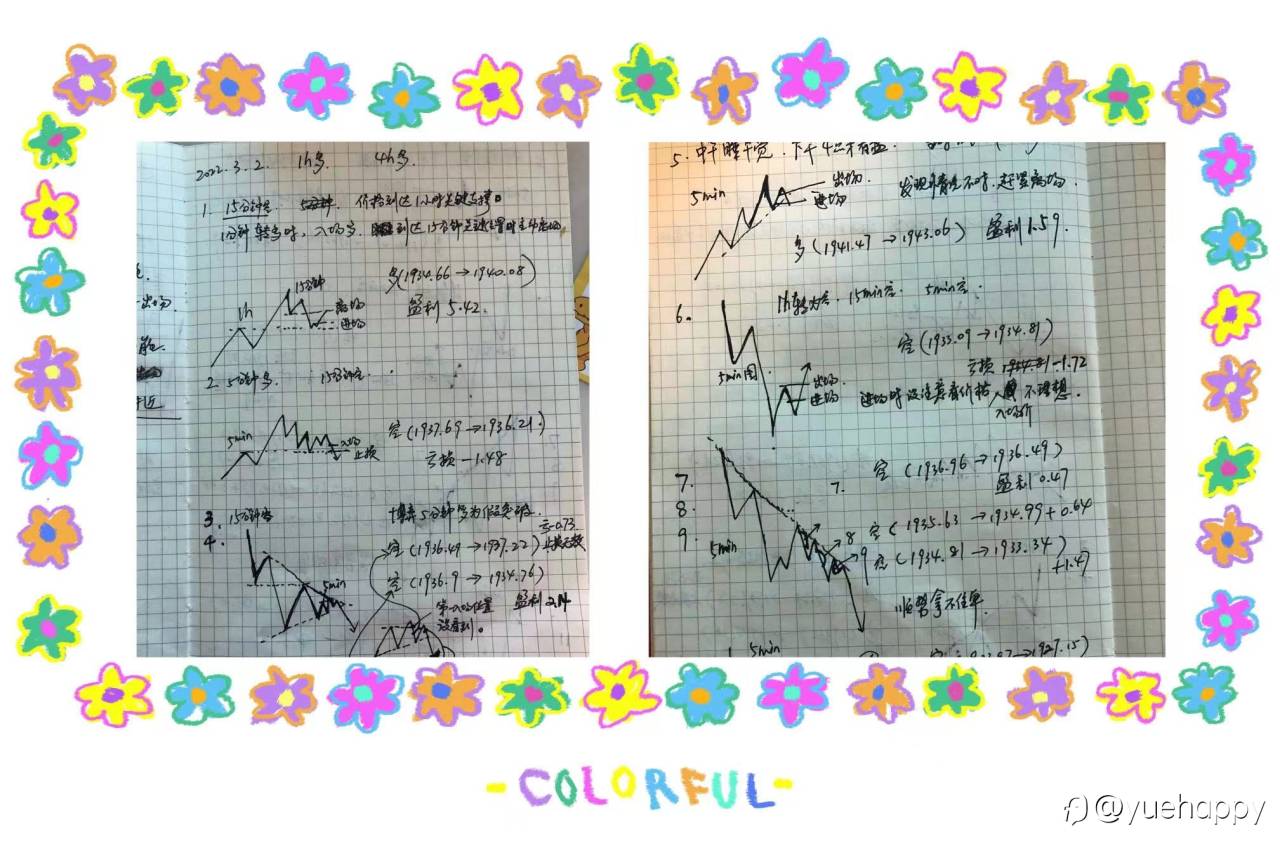 2022.3.2. 1h多. 4h多.
1. 15分钟空 价格到达1小时关键支撑。
1分钟转多时，入场多. 到达15分钟关键位置时主动离场
多(1934.66→1940.08)
盈利 5.42.
15分钟
1h
离场
进场
2. 5分钟多. 15分钟空.
5min
入场
止损
空(1937.69→1936.21.)
亏损 -1.48
3. 15分钟空
4.
5分钟多为假突破.
空(1936.49→1937.22) 亏-0.73.
空(1936.9→1934.76)
盈利 2.14
5min
第一入场位置
没看到。
出场.
5.
5min
出场.
进场
发现不对时.赶紧离场.
多(1941.47→1943.06) 盈利1.59.
6. 1h转为空. 15min空. 5min空.
空(1933.09→1934.81)
亏损 -1.72
5min图
出场.
进场.
进场时没注意看价格 不理想.
入场价
7. 7. 空 (1936.96→1936.49)
盈利 0.47
8. 8 空 (1935.63→1934.99 +0.64
9. 9 空 (1934.81→1933.34)
+1.47
5min
顺势拿不住单.
5min
1927.15)
-COLORFUL-
@yuehappy